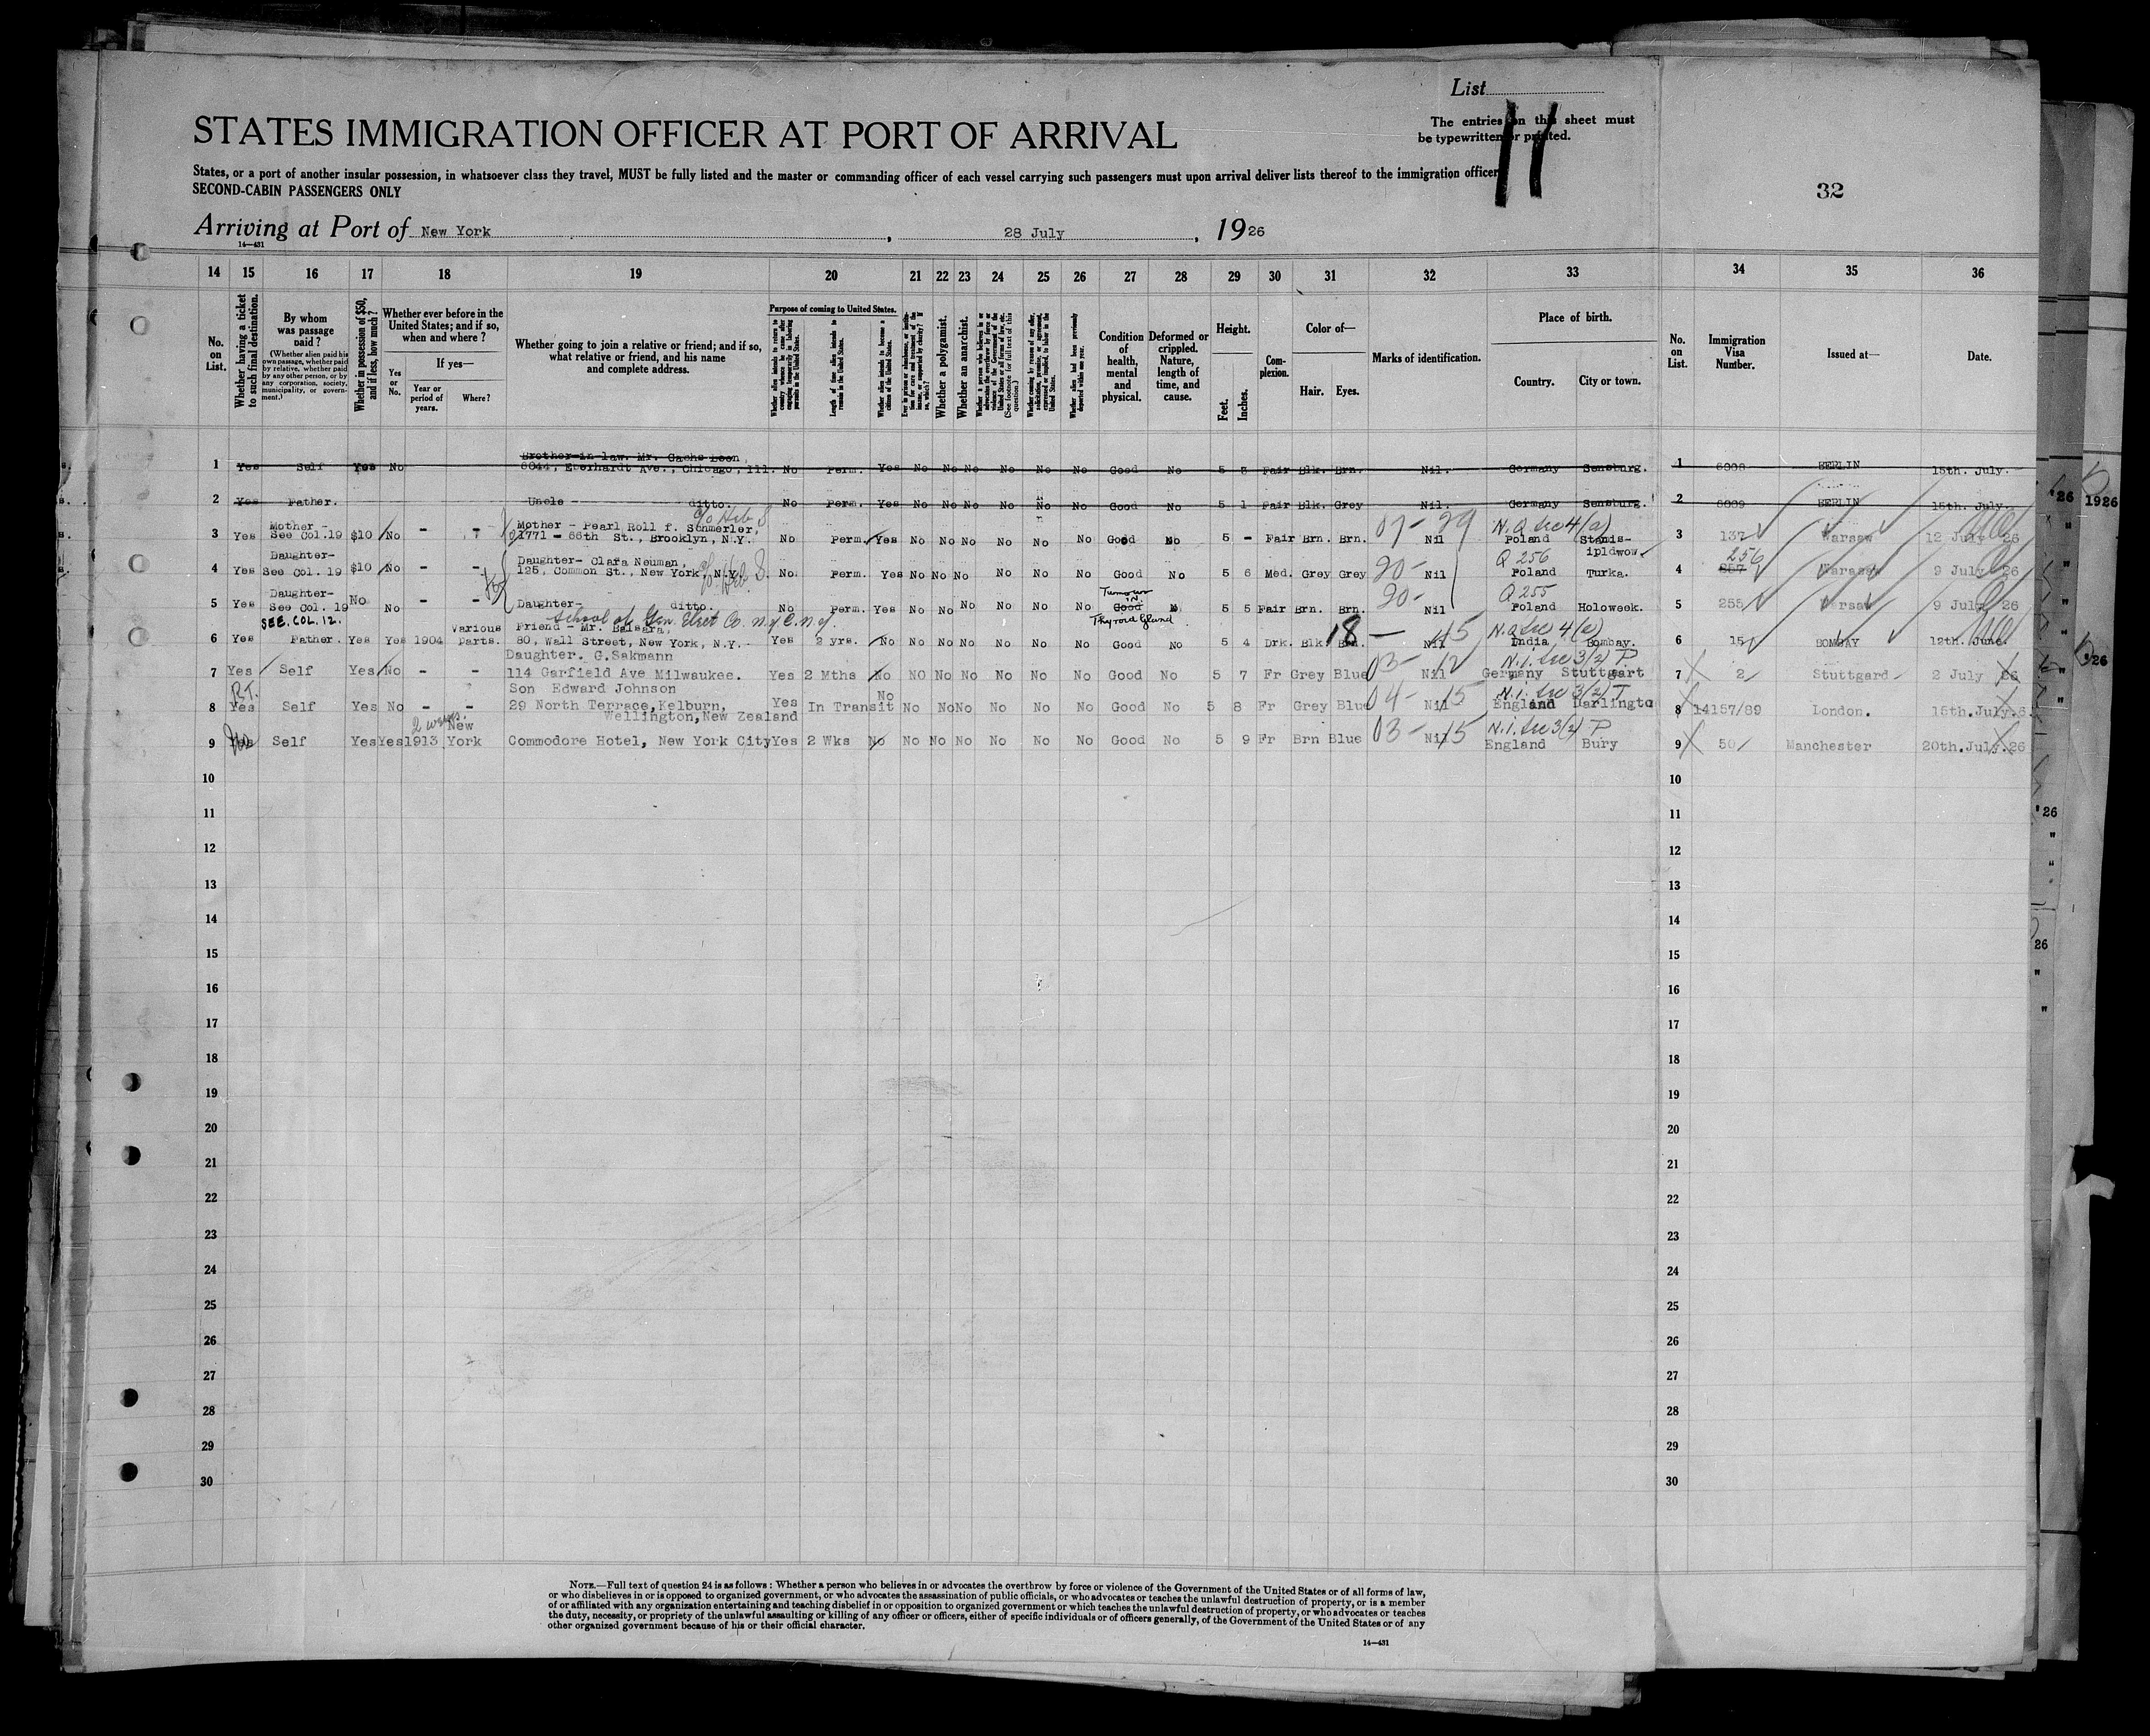 List
11
The entries on this sheet must
be typewritten or printed.
STATES IMMIGRATION OFFICER AT PORT OF ARRIVAL
States, or a port of another insular possession, in whatsoever class they travel, MUST be fully listed and the master or commanding officer of each vessel carrying such passengers must upon arrival deliver lists thereof to the immigration officer
SECOND-CABIN PASSENGERS ONLY
32
Arriving at Port of New York, 28 July, 1926
14—431
14 15 16 17 18 19 20 21 22 23 24 25 26 27 28 29 30 31 32 33 34 35 36
No. on List.
Whether having a ticket to such final destination.
By whom was passage paid?
(Whether alien paid his own passage, whether paid by relative, whether paid by any other person, or by any corporation, society, municipality, or government.)
Whether in possession of $50, and if less, how much?
Whether ever before in the United States; and if so, when and where?
Yes or No.
If yes—
Year or period of years.
Where?
Whether going to join a relative or friend; and if so, what relative or friend, and his name and complete address.
Purpose of coming to United States.
Whether alien intends to return to country whence he came after engaging temporarily in laboring pursuits in the United States.
Length of time alien intends to remain in the United States.
Whether alien intends to become a citizen of the United States.
Whether a polygamist.
Whether an anarchist.
Condition of health, mental and physical.
Deformed or crippled. Nature, length of time, and cause.
Height.
Feet.
Inches.
Complexion.
Color of—
Hair.
Eyes.
Marks of identification.
Place of birth.
Country.
City or town.
No. on List.
Immigration Visa Number.
Issued at—
Date.
Brother-in-law. Mr. Gachs Leon,
1 Yes Self Yes No 8044, Eberhardt Ave., Chicago, Ill. No Perm. Yes No No No No No No Good No 5 8 Fair Blk. Brn. Nil. Germany Sensburg. 1 6908 BERLIN 15th. July.
2 Yes Father. Uncle ditto. No Perm. Yes No No No No No No Good No 5 1 Fair Blk. Grey Nil. Germany Sensburg. 2 6909 BERLIN 15th. July.
Mother - Mother - Pearl Roll f. Schmerler, 07-29 N.Q Sec 4(a)
3 Yes See Col.19 $10 No - - 1771 - 66th St., Brooklyn, N.Y. No Perm. Yes No No No No No No Good No 5 - Fair Brn. Brn. Nil Poland Stanis- 3 137 Warsaw 12 July 26
ipldwow.
Daughter- Daughter- Clara Neuman, 20- Q 256 256
4 Yes See Col. 19 $10 No - - 125, Common St., New York, N.Y. No. Perm. Yes No No No No No No Good No 5 6 Med. Grey Grey Nil Poland Turka. 4 Warsaw 9 July 26
Daughter- Tumour in 20- Q 255
5 Yes See Col. 19 No No - - Daughter- ditto. No Perm. Yes No No No No No No Good 5 5 Fair Brn. Brn. Nil Poland Holoweek. 5 255 Warsaw 9 July 26
Thyroid Gland
SEE. COL. 12. School of Gen. Elect Co. N.Y.C. N.Y.
Various Friend - Mr. Balsara, 18 - 15 N.Q Sec 4(e)
6 Yes Father. Yes Yes 1904 Parts. 80, Wall Street, New York, N.Y. Yes 2 yrs. No No No No No No No Good No 5 4 Drk. Blk Brn. Nil India Bombay. 6 15 BOMBAY 12th. June.
Daughter. G.Sakmann 03-12 N.I. Sec 3(2) P
7 Yes Self Yes No - - 114 Garfield Ave Milwaukee. Yes 2 Mths No NO No No No No No Good No 5 7 Fr Grey Blue Nil Germany Stuttgart 7 2 Stuttgard 2 July 26
R.T. Son Edward Johnson No 04-15 N.I. Sec 3(2) T
8 Yes Self Yes No - - 29 North Terrace, Kelburn, Yes In Transit No No No No No No Good No 5 8 Fr Grey Blue Nil England Darlingto 8 14157/89 London. 15th.July.
Wellington, New Zealand
2 weeks. New 03-15 N.I. Sec 3(2) P
9 Yes Self Yes Yes 1913 York Commodore Hotel, New York City Yes 2 Wks No No No No No No No Good No 5 9 Fr Brn Blue Nil England Bury 9 50 Manchester 20th.July.26
10 10
11 11
12 12
13 13
14 14
15 15
16 16
17 17
18 18
19 19
20 20
21 21
22 22
23 23
24 24
25 25
26 26
27 27
28 28
29 29
30 30
NOTE.—Full text of question 24 is as follows: Whether a person who believes in or advocates the overthrow by force or violence of the Government of the United States or of all forms of law,
or who disbelieves in or is opposed to organized government, or who advocates the assassination of public officials, or who advocates or teaches the unlawful destruction of property, or is a member
of or affiliated with any organization entertaining and teaching disbelief in or opposition to organized government or which teaches the unlawful destruction of property, or who advocates or teaches
the duty, necessity, or propriety of the unlawful assaulting or killing of any officer or officers, either of specific individuals or of officers generally, of the Government of the United States or of any
other organized government because of his or their official character.
14—431